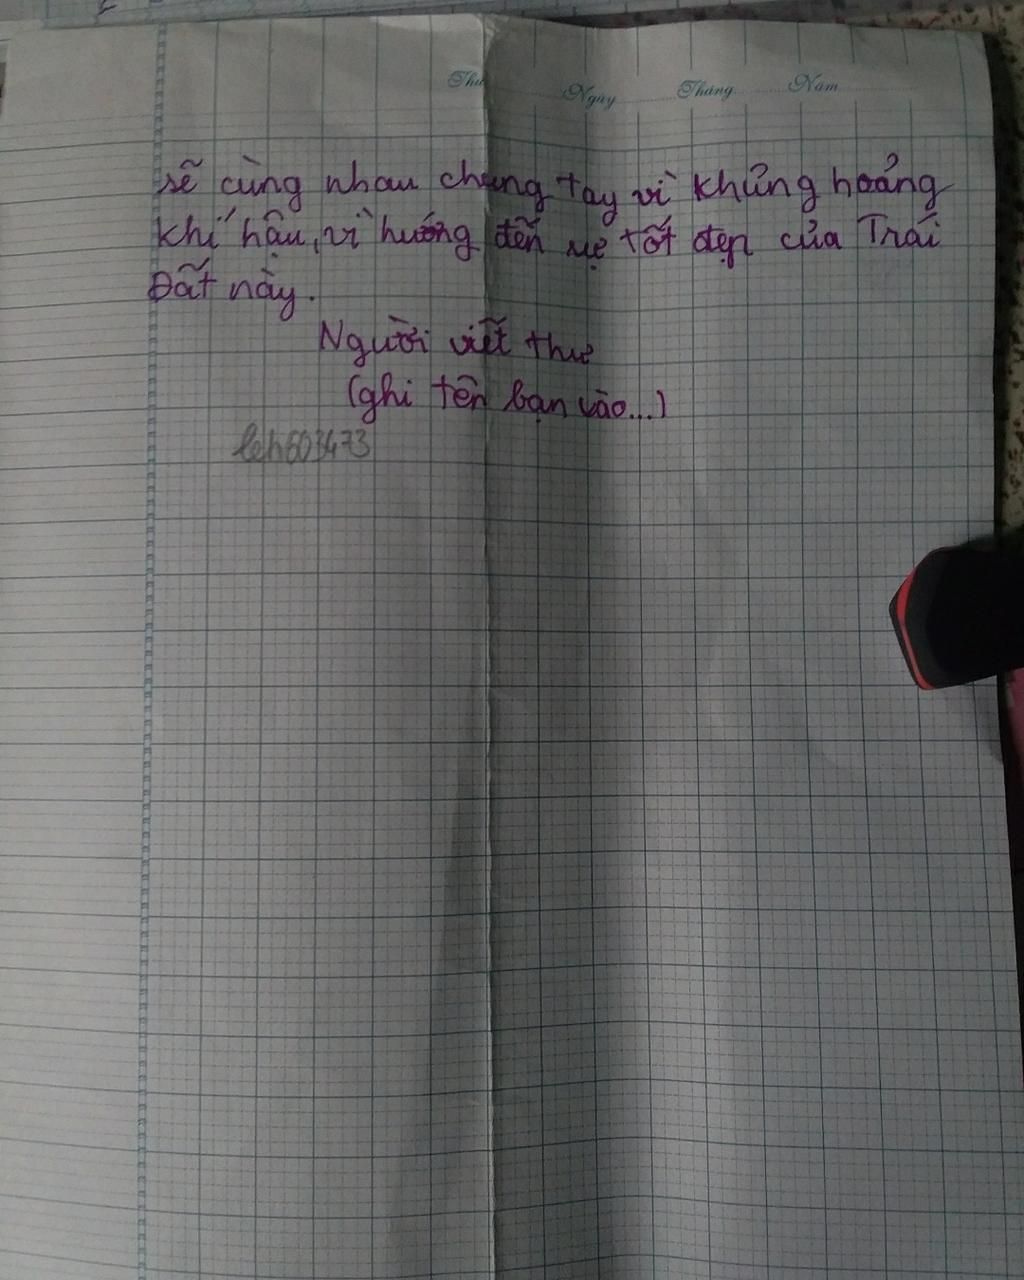 Thứ Ngày Tháng Năm
sẽ cùng nhau chung tay vì khủng hoảng
khí hậu, vì hướng đến sự tốt đẹp của Trái
Đất này.
Người viết thư
(ghi tên bạn vào...)
leh603473